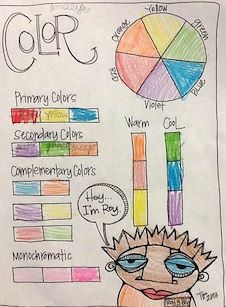 COLOR
Yellow
Orange
green
Red
Blue
Violet
Primary Colors
Yellow
Secondary Colors
Complementary Colors
Monochromatic
Warm
Cool
Hey...
I'm Roy